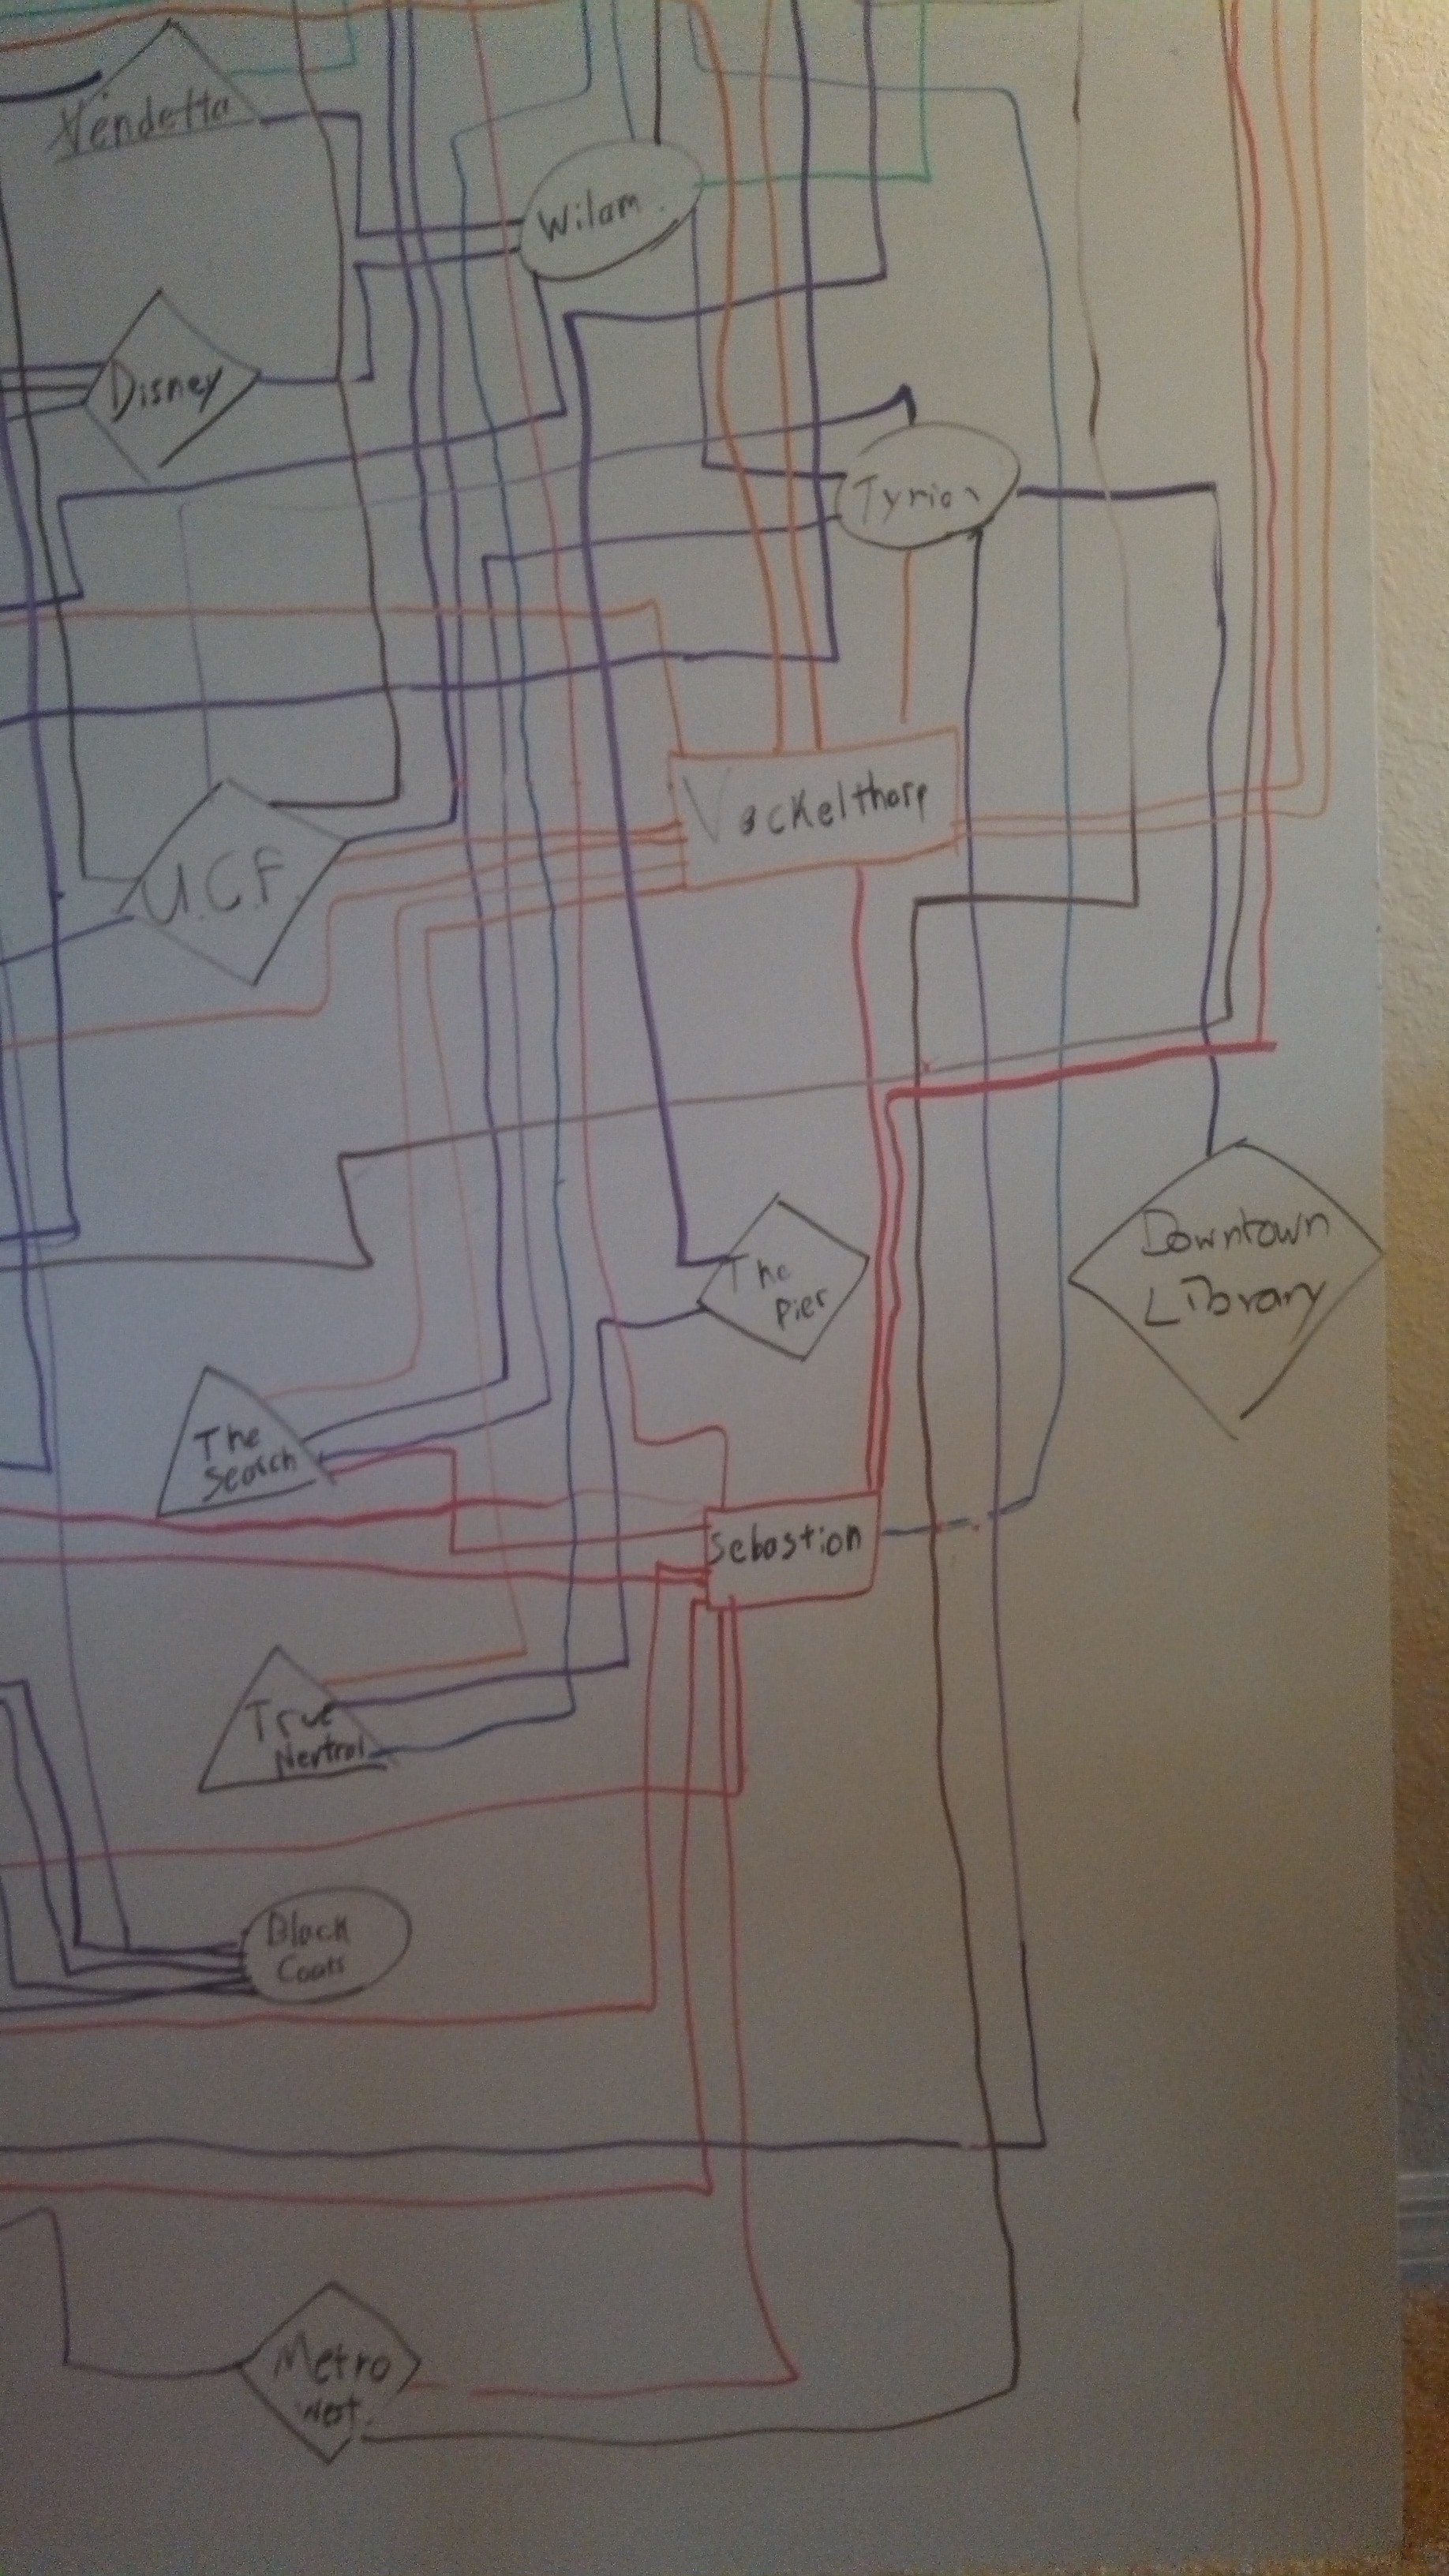 Vendetta
Wilam.
Disney
Tyrion
Vackelthorp
U.C.F
Downtown
Library
The
Pier
The
Search
Sebastion
True
Nertral
Black
Coats
Metro
West.